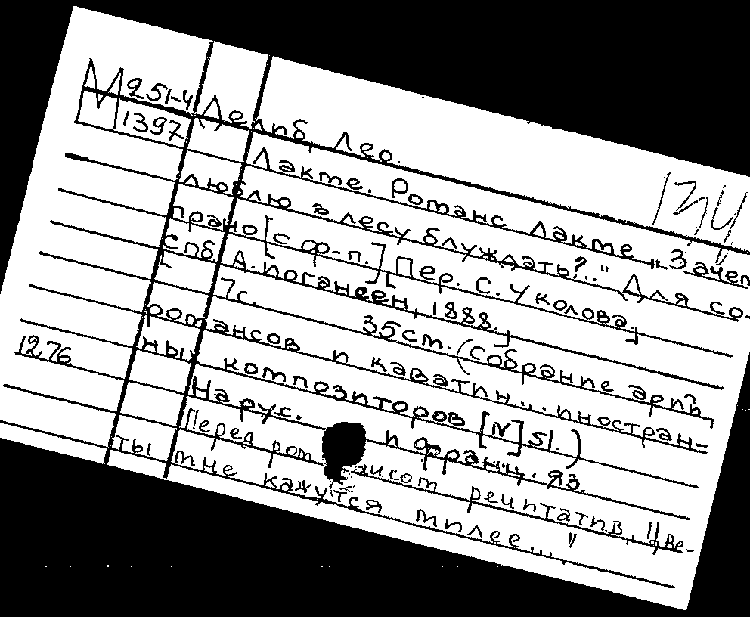 М 251-4
1397
Делиб, Лео.
134
Лакме. Романс Лакме „Зачем
люблю в лесу блуждать?.." Для со-
прано [с ф-п.] Пер. С. Уколова.
[Спб, А. Иогансен, 1888.]
7с. 35см. (Собрание арий,
романсов и каватин... иностран-
ных композиторов [N] 51.)
На рус. и франц. яз.
12.76
Перед романсом речитатив „Цве-
ты мне кажутся милее..."